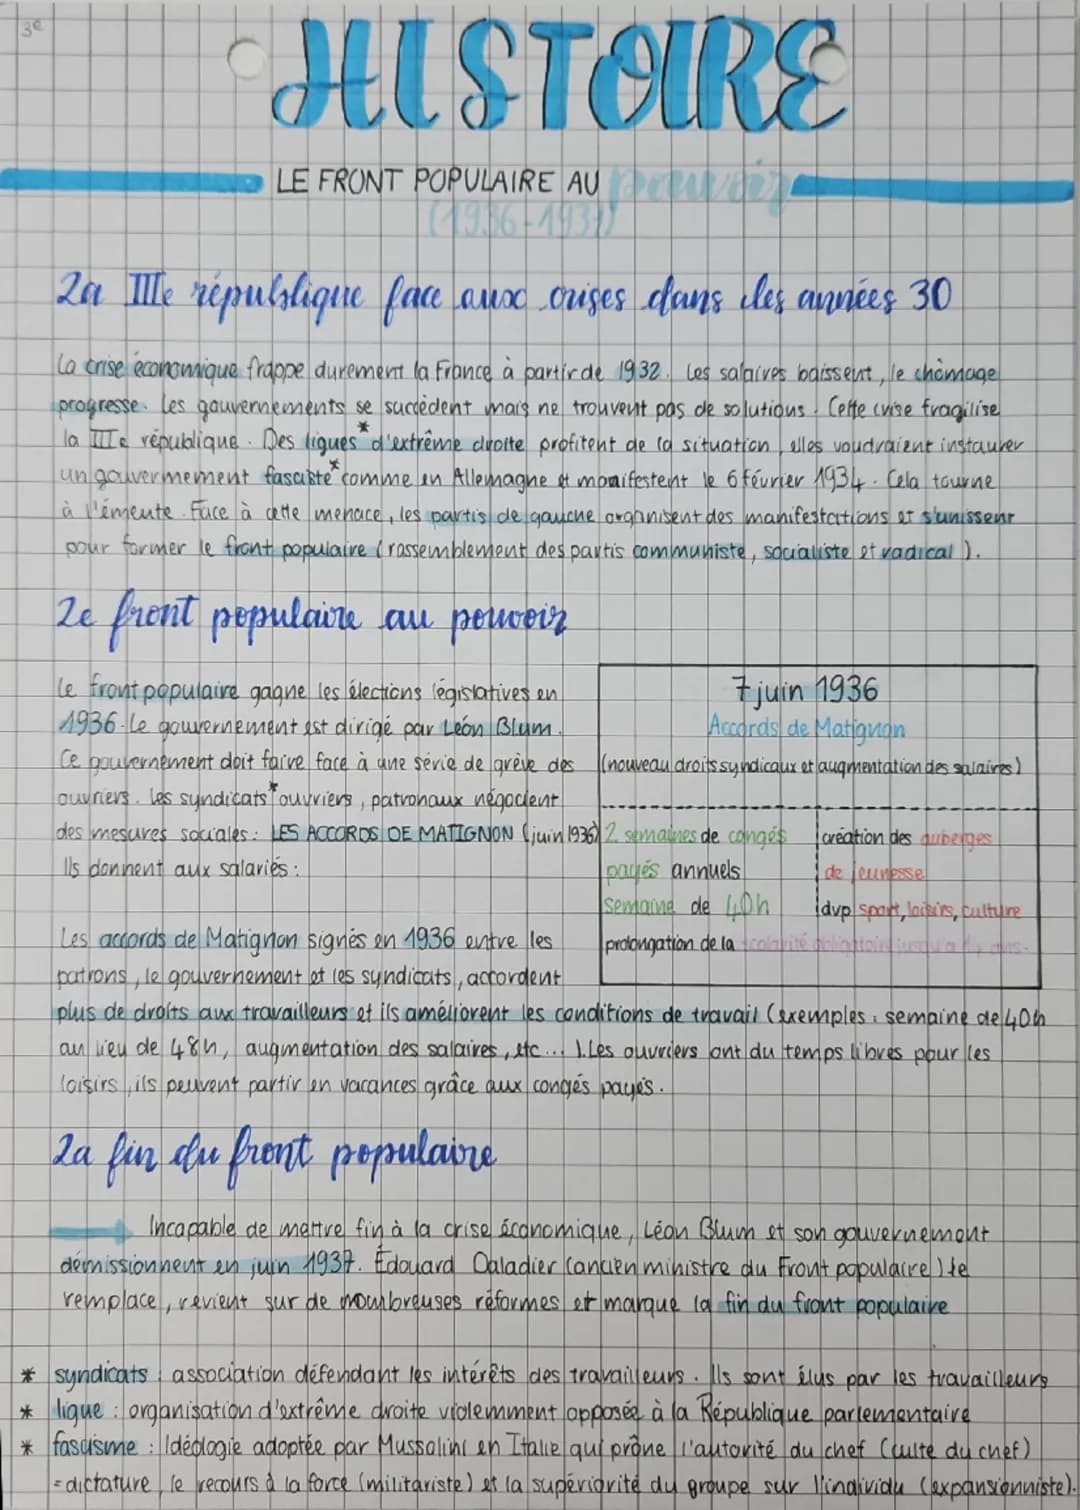 3e
HISTOIRE
LE FRONT POPULAIRE AU pouvoir
(1936-1937)
La IIIe république face aux crises dans les années 30
La crise économique frappe durement la France à partir de 1932. Les salaires baissent, le chômage
progresse. Les gouvernements se succèdent mais ne trouvent pas de solutions. Cette crise fragilise
la IIIe république. Des ligues* d'extrême droite profitent de la situation, elles voudraient instaurer
un gouvernement fasciste* comme en Allemagne et manifestent le 6 février 1934. Cela tourne
à l'émeute. Face à cette menace, les partis de gauche organisent des manifestations et s'unissent
pour former le front populaire (rassemblement des partis communiste, socialiste et radical).
Le front populaire au pouvoir
Le front populaire gagne les élections législatives en
1936. Le gouvernement est dirigé par Léon Blum.
Ce gouvernement doit faire face à une série de grève des
ouvriers. Les syndicats* ouvriers, patronaux négocient
des mesures sociales : LES ACCORDS DE MATIGNON (juin 1936)
Ils donnent aux salariés :
7 juin 1936
Accords de Matignon
(nouveau droits syndicaux et augmentation des salaires)
2 semaines de congés
payés annuels
semaine de 40h
création des auberges
de jeunesse
dvp sport, loisirs, culture
prolongation de la scolarité obligatoire jusqu'à 14 ans.
Les accords de Matignon signés en 1936 entre les
patrons, le gouvernement et les syndicats, accordent
plus de droits aux travailleurs et ils améliorent les conditions de travail (exemples : semaine de 40h
au lieu de 48h, augmentation des salaires, etc... ). Les ouvriers ont du temps libres pour les
loisirs, ils peuvent partir en vacances grâce aux congés payés.
La fin du front populaire
Incapable de mettre fin à la crise économique, Léon Blum et son gouvernement
démissionnent en juin 1937. Édouard Daladier (ancien ministre du Front populaire) le
remplace, revient sur de nombreuses réformes et marque la fin du front populaire
* syndicats : association défendant les intérêts des travailleurs. Ils sont élus par les travailleurs
* ligue : organisation d'extrême droite violemment opposée à la République parlementaire
* fascisme : Idéologie adoptée par Mussolini en Italie qui prône l'autorité du chef (culte du chef)
= dictature, le recours à la force (militariste) et la supériorité du groupe sur l'individu (expansionniste).